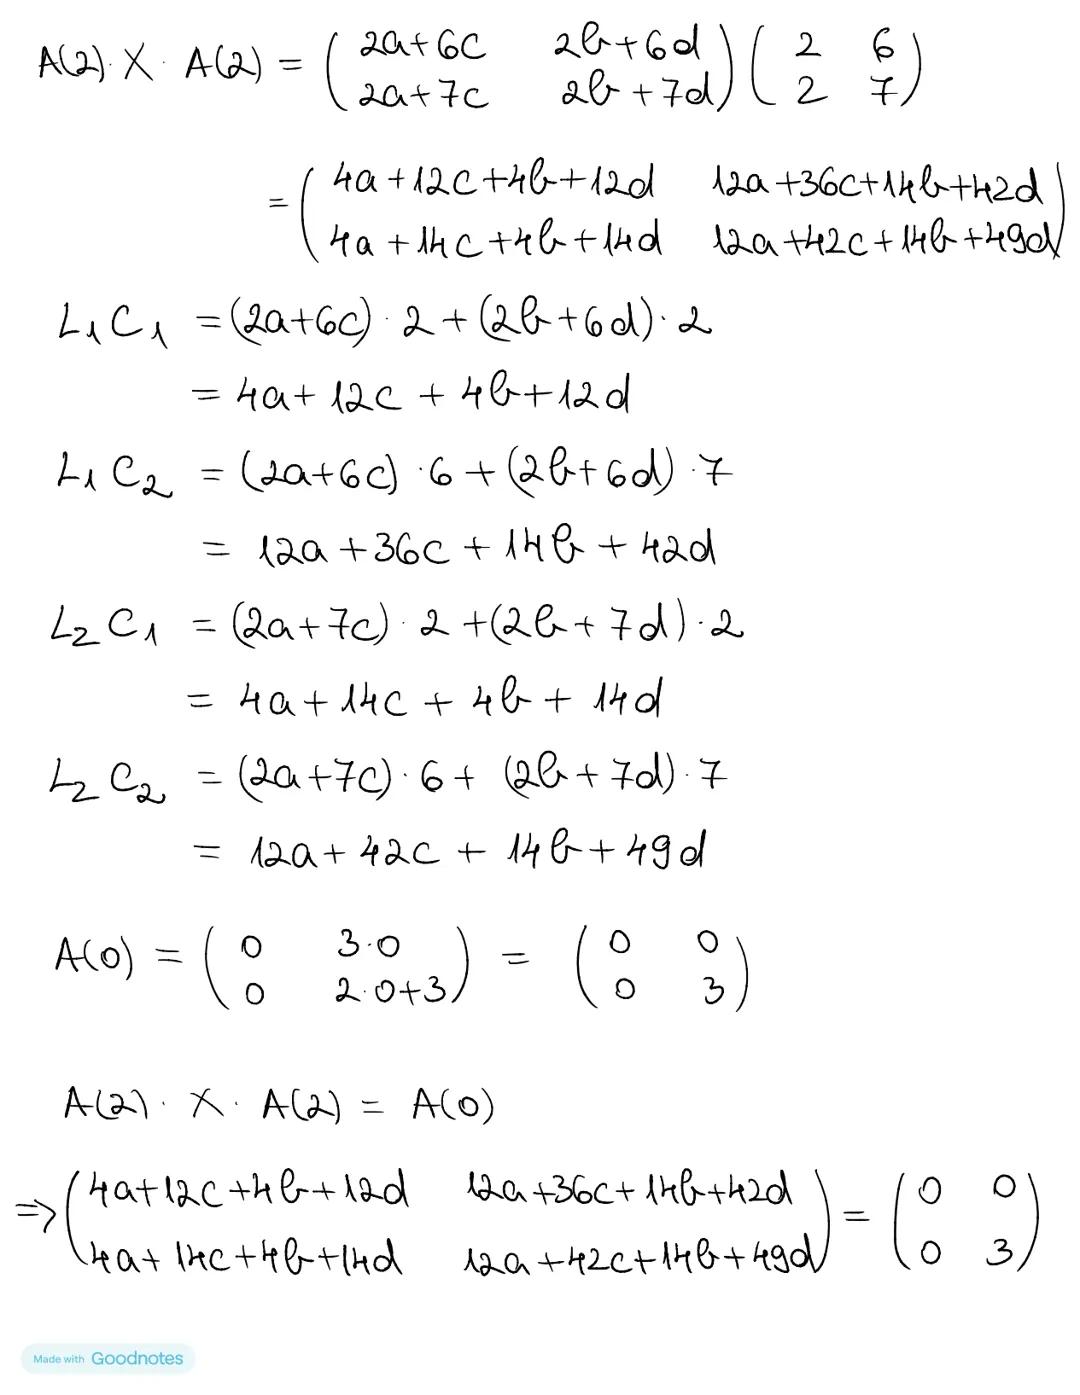 A(2)·X·A(2) = ( 2a+6c 2b+6d ) ( 2 6 )
( 2a+7c 2b+7d ) ( 2 7 )
= ( 4a+12c+4b+12d 12a+36c+14b+42d )
( 4a+14c+4b+14d 12a+42c+14b+49d )
L₁C₁ = (2a+6c)·2+(2b+6d)·2
= 4a+12c+4b+12d
L₁C₂ = (2a+6c)·6+(2b+6d)·7
= 12a+36c+14b+42d
L₂C₁ = (2a+7c)·2+(2b+7d)·2
= 4a+14c+4b+14d
L₂C₂ = (2a+7c)·6+(2b+7d)·7
= 12a+42c+14b+49d
A(0) = ( 0 3·0 ) = ( 0 0 )
( 0 2·0+3 ) ( 0 3 )
A(2)·X·A(2) = A(0)
⇒ ( 4a+12c+4b+12d 12a+36c+14b+42d ) = ( 0 0 )
( 4a+14c+4b+14d 12a+42c+14b+49d ) ( 0 3 )
Made with Goodnotes